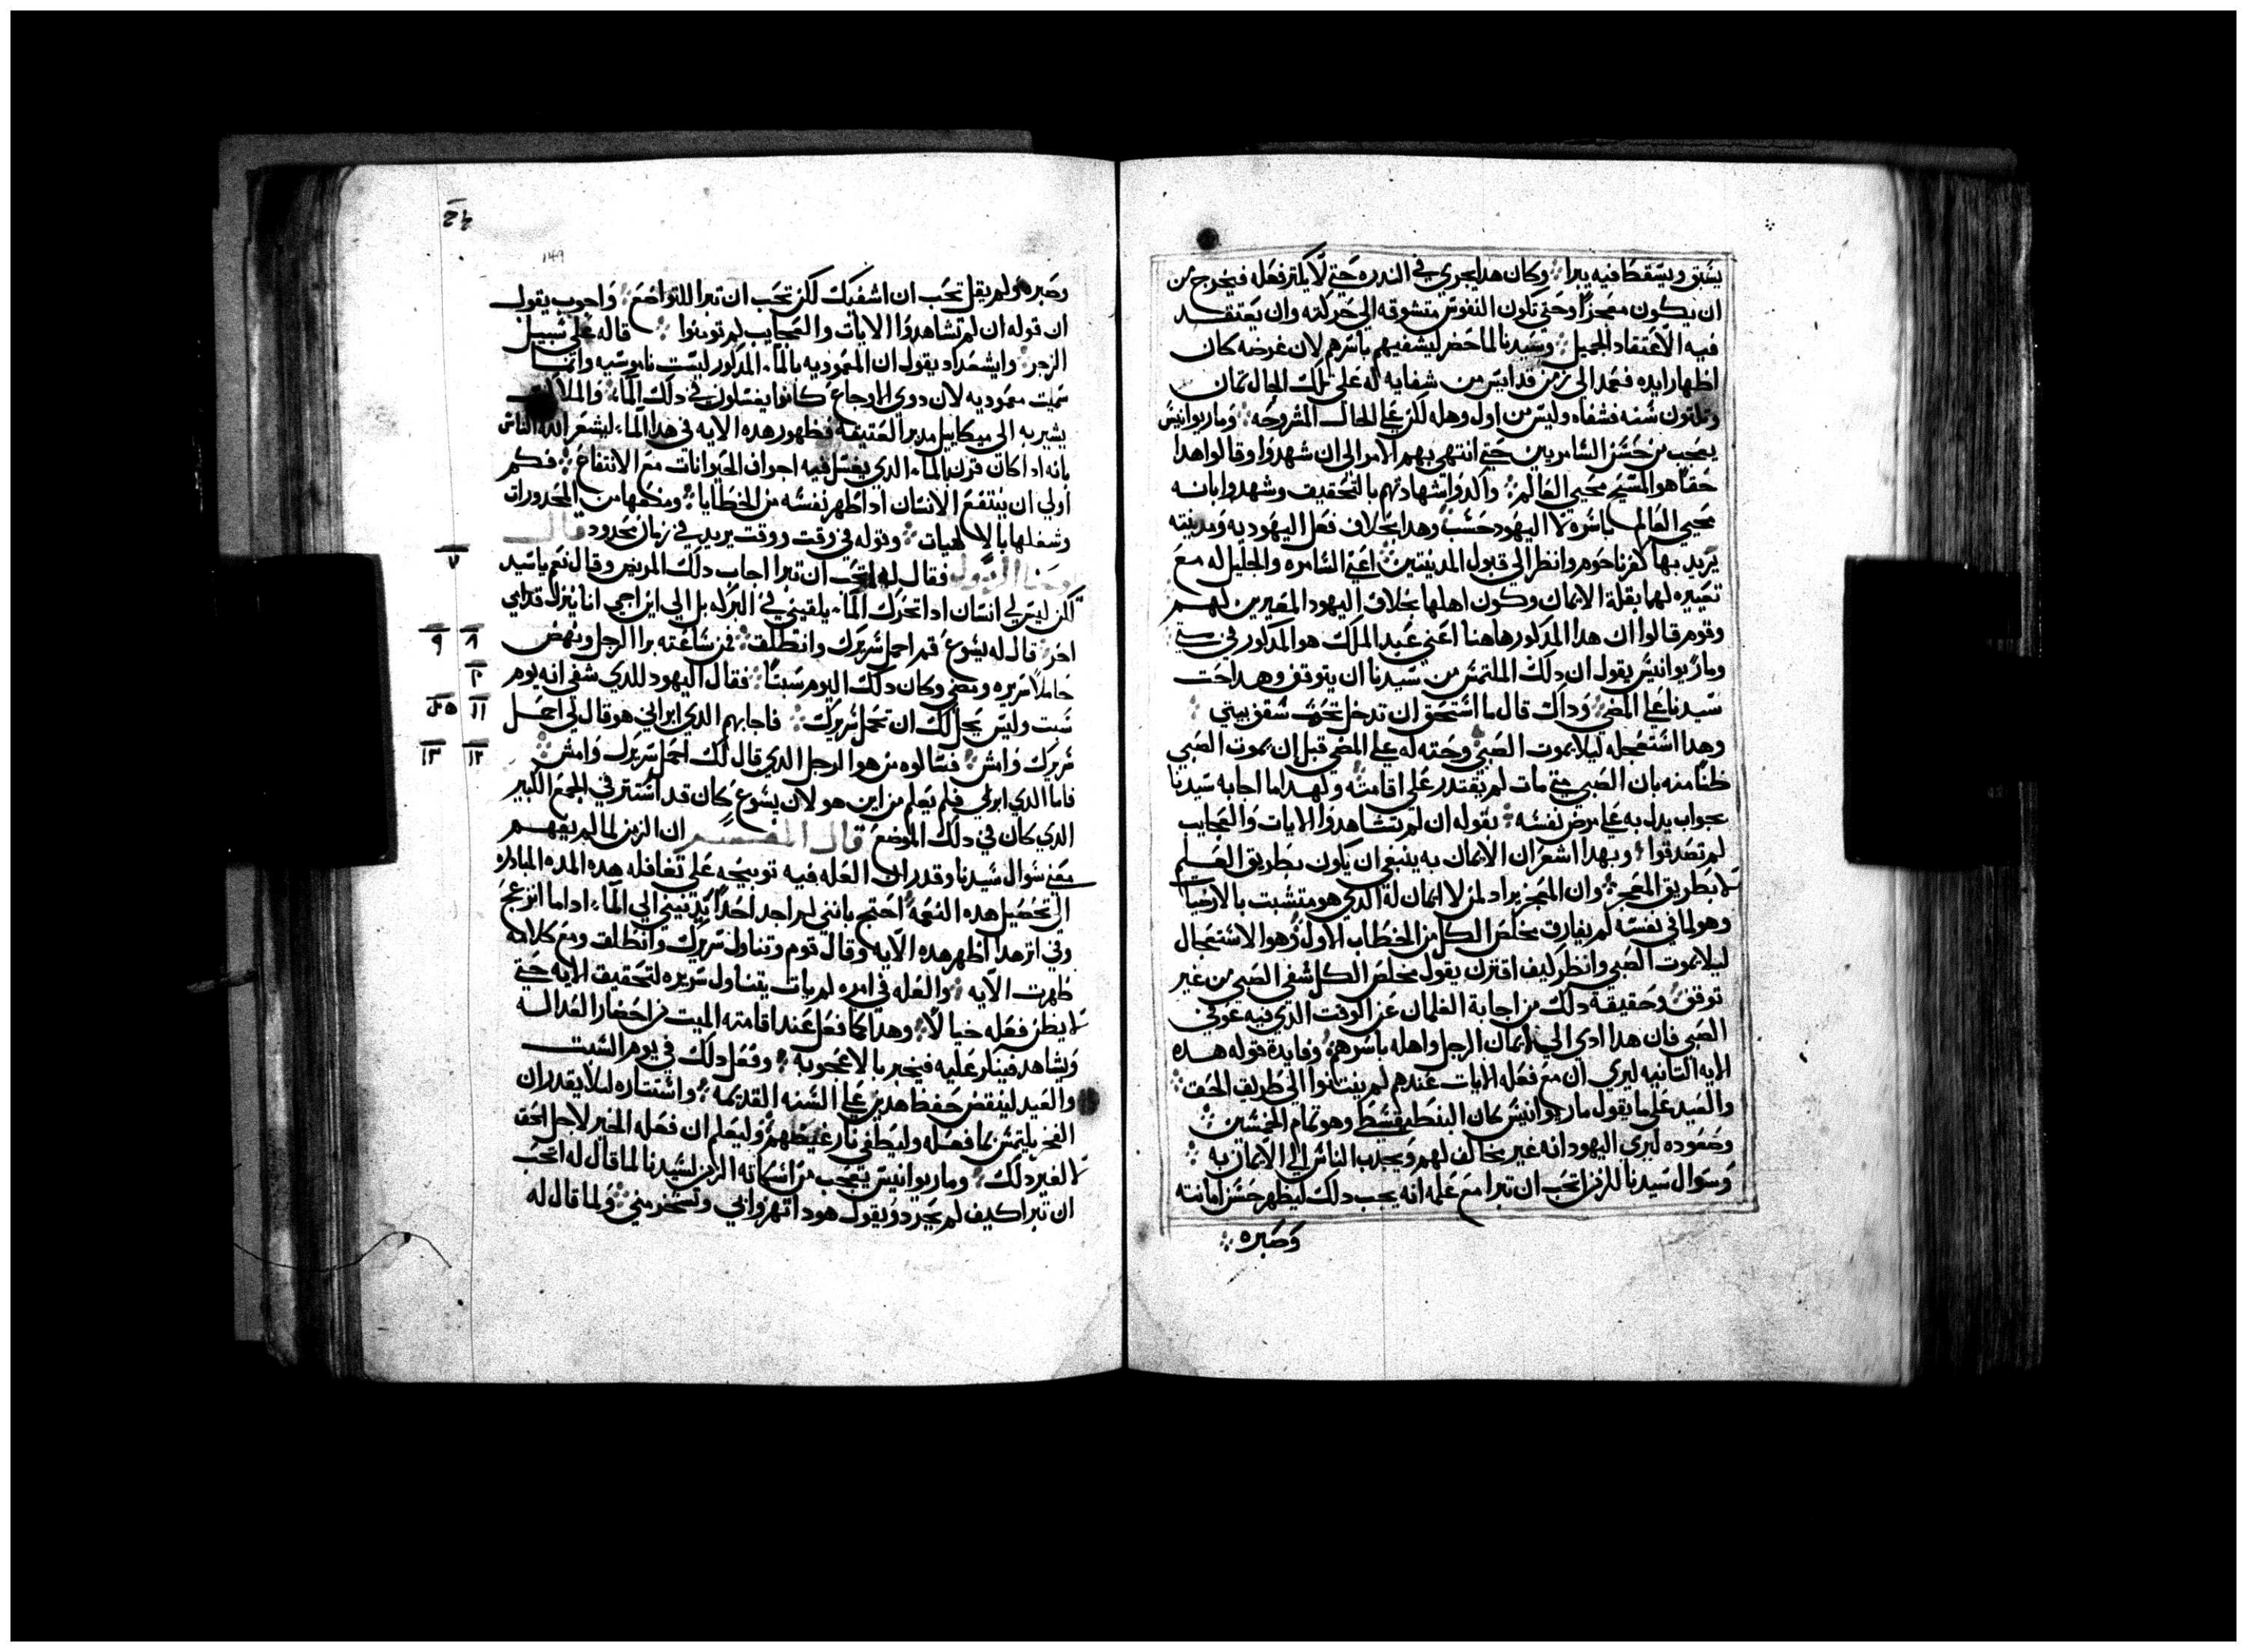 يستق ويسقط فيه يبرا وكان هدا يجري في الندره حتي لا يكثر فعله فيخرج من
ان يكون معجزا وحتي تكون النفوس متشوقه الي حركته وان يعتقد
فيه الاعتقاد الجميل وسيدنا لما حضر ليشفيهم باسرهم لان غرضه كان
اظهار ايده فعمد الي زمن قد ايس من شفايه له علي تلك الحال تمان
وتلتون سنه فشفاه وليس من اول وهله لكن علي الحال المشروحه وماريوانيس
يعجب من حسن السامريين حتي انتهي بهم الامر الي ان شهدوا وقالوا هدا
حقا هو المسيح محيي العالم واكدوا شهادتهم بالتحقيق وشهدوا بانه
محيي العالم باسره لا اليهود حسب وهدا بخلاف فعل اليهوديه ومدينته
يريد بها كفرناحوم وانظر الي قبول المدينتين اعني السامره والجليل له مع
تعييره لها بقلة الايمان وكون اهلها بخلاف اليهود المعيرين لهم
وقوم قالوا ان هدا المدكور هاهنا اعني عبد الملك هو المدكور في متي
وماريوانيس يقول ان دلك الملتمس من سيدنا ان يتوقف وهدا حت
سيدنا علي المضي وداك قال ما استحق ان تدخل تحت سقف بيتي
وهدا استعجله ليلا يموت الصبي وحته له علي المضي قبل ان يموت الصبي
ظنا منه بان الصبي متي مات لم يقتدر علي اقامته ولهدا ما اجابه سيدنا
بجواب يدل به علي مرض نفسه بقوله ان لم تشاهدوا الايات والعجايب
لم تصدقوا وبهدا اشعر ان الايمان به ينبغي ان يكون بطريق العلم
لا بطريق المعجز وان المعجز يراد لمن لا ايمان له الدي هو متشبت بالارضيات
وهو لما في نفسه لم يفارق مخلص الكل من الخطاب الاول وهو الاستعجال
ليلا يموت الصبي وانظر كيف اقترن يقول مخلص الكل شفي الصبي من غير
توقف وحقيقة دلك من اجابة الغلمان عن الوقت الدي فيه عوفي
الصبي فان هدا ادي الي ايمان الرجل واهله باسرهم وفايدة قوله هده
الايه التانيه ليري ان مع فعله الايات عندهم لم ينتانوا الي طريق الحق
والعيد علي ما يقول ماريوانيس كان البنطيقسطي وهو تمام الخمسين
وصعوده ليري اليهود انه غير مخالف لهم ويجدب الناس الي الايمان به
وسوال سيدنا للزمن اتحب ان تبرا مع علمه انه يحب دلك ليظهر حسن امانته
وصبره
١٤٩
وصبره ولم يقل تحب ان اشفيك لكن تحب ان تبرا للتواضع واجوب يقول
ان قوله ان لم تشاهدوا الايات والعجايب لم تومنوا قاله علي سبيل
الزجر وايشعداد يقول ان المعموديه بالماء المدكور ليست ناموسيه وانما
سميت معموديه لان دوي الاوجاع كانوا يغسلون في دلك الماء والملاك
يشير به الي ميكاييل مدبر العتيقه فظهور هده الايه في هدا الماء ليشعر الله الناس
بانه ادا كان قرن بالماء الدي يغسل فيه اجواف الحيوانات مع الانتفاع فكم
اولي ان ينتفع الانسان ادا طهر نفسه من الخطايا ومنعها من المحدورات
وشغلها بالالاهيات وقوله في وقت ووقت يريد في زمان محدود قال
يوحنا الرسول فقال له اتحب ان تبرا اجاب دلك المريض وقال نعم يا سيد
لكن ليس لي انسان ادا تحرك الماء يلقيني في البركه بل الي ان اجي انا ينزل قدامي
اخر قال له يشوع قم احمل سريرك وانطلق فمن ساعته برا الرجل ونهض
حاملا سريره ومضي وكان دلك اليوم سبتا فقال اليهود للدي شفي انه يوم
سبت وليس يحل لك ان تحمل سريرك فاجابهم الدي ابراني هو قال لي احمل
سريرك وامش فسالوه من هو الرجل الدي قال لك احمل سريرك وامش
فاما الدي ابري فلم يعلم من اين هو لان يشوع كان قد استتر في الجمع الكبير
الدي كان في دلك الموضع قال المفسر ان الزمن لما لم يفهم
معني سوال سيدنا وقدر ان العله فيه توبيخه علي تغافله هده المده المبادره
الي تحصيل هده النعمه احتج بانني لم اجد احدا يدنيني الي الماء ادا ما انزعج
وفي اتر هدا اظهر هده الايه وقال قوم وتناول سريرك وانطلق ومع كلامه
ظهرت الايه والعله في امره لم بات يتناول سريره لتحقيق الايه حتي
لا يظن فعله خيالا وهدا كما فعل عند اقامته الميت من احضار الغدا له
ويشاهد فيسال عليه فيخبر بالاعجوبه وفعل دلك في يوم السبت
والعيد لينقض حفظ هدين علي السنه القديمه واستتاره ليلا يقدر ان
الفخر يلتمس بما فعله وليطفي نار غيظهم وليعلم ان فعله الخير لاجل الحق
لا لغير دلك وماريوانيس يعجب من استكانه الزمن لسيدنا لما قال له اتحب
ان تبرا كيف لم يحرد ويقول هودا تهزوا بي وتسخر مني ولما قال له
٧
٨ ٩
١٠
١١
١٢ ١٣